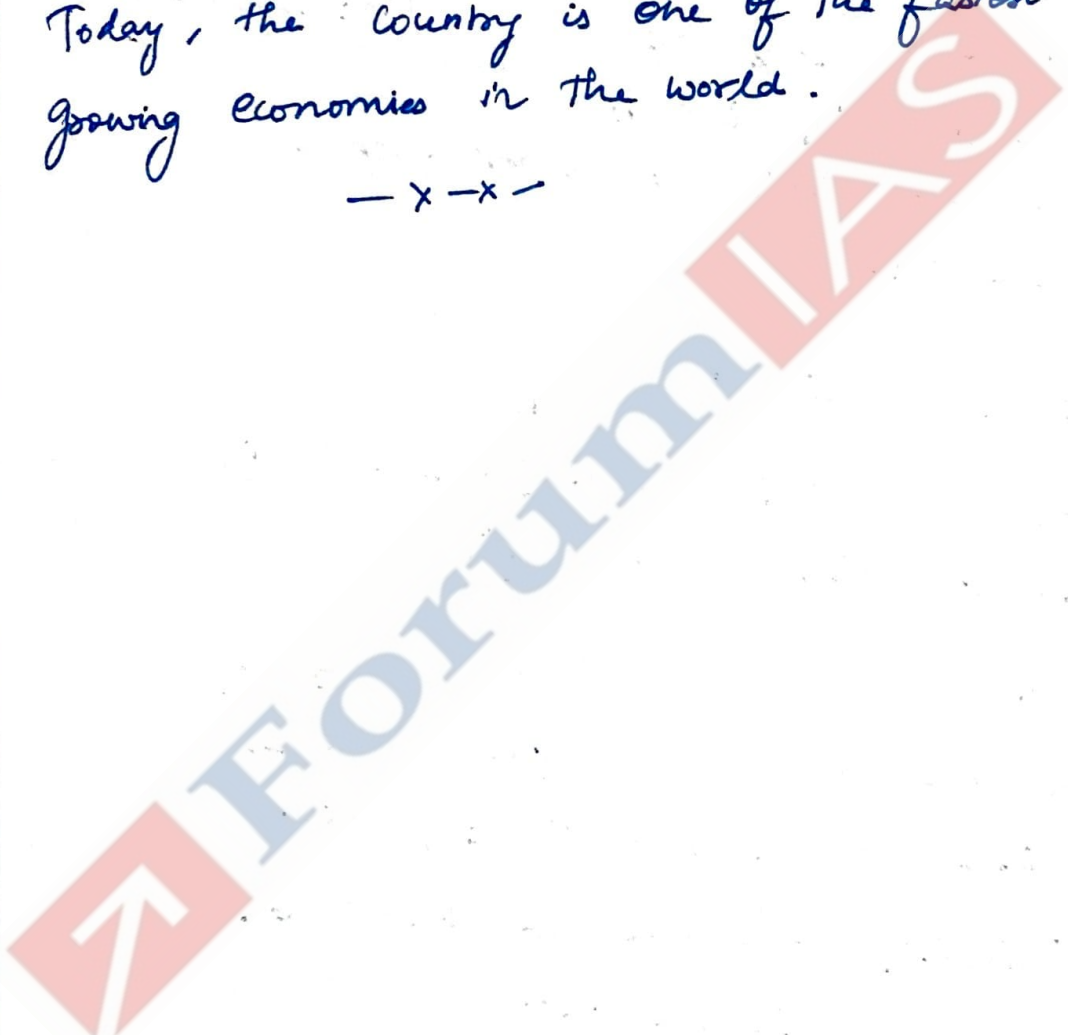 Today, the country is one of the fastest
growing economies in the world.
— x — x —
ForumIAS